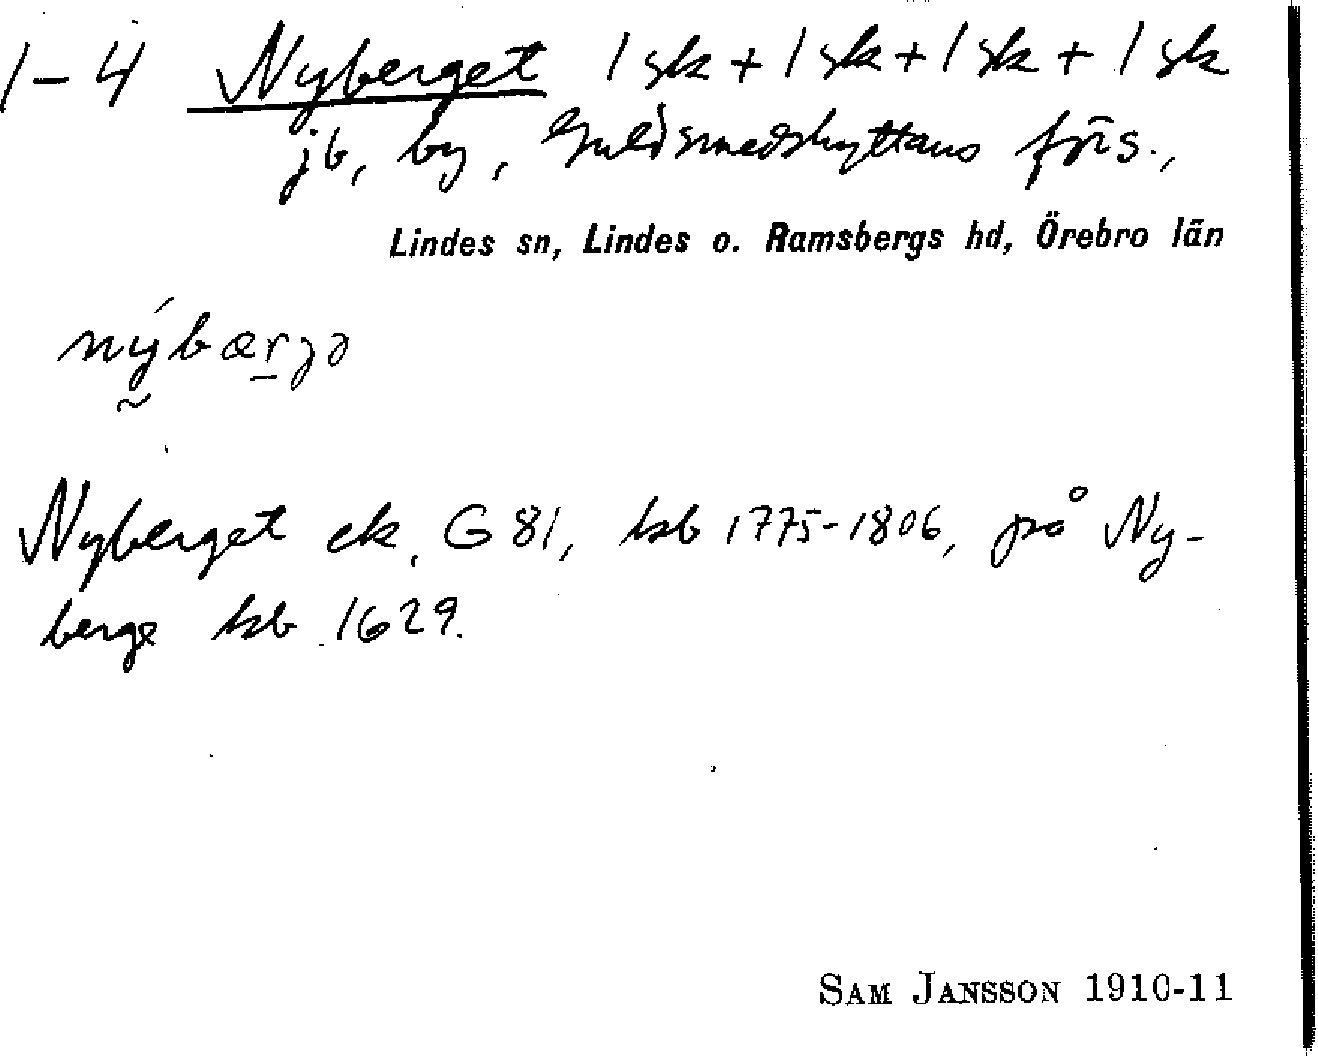 1-4 Nyberget 1 sk + 1 sk + 1 sk + 1 sk
jb, by, Guldsmedshyttans förs.,
Lindes sn, Lindes o. Ramsbergs hd, Örebro län
nybærjə
Nyberget ek, G 81, hsb 1775-1806, på Ny-
berge hsb 1629.
SAM JANSSON 1910-11